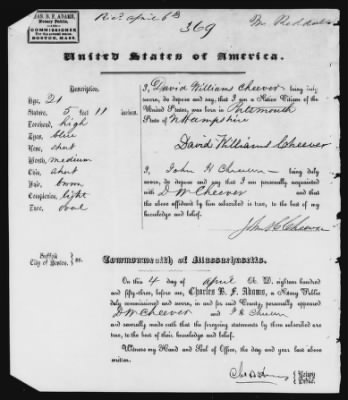 JAS. B. F. ADAMS,
Notary Public,
COMMISSIONER
BOSTON, MASS.
Rec'd April 6th
369
United States of America.
Description.
Age, 21
Stature, 5 feet 11 inches.
Forehead, high
Eyes, blue
Nose, short
Mouth, medium
Chin, short
Hair, brown
Complexion, light
Face, oval
I, David Williams Cheever being duly
sworn, do depose and say, that I am a Native Citizen of the
United States, was born in Portsmouth
State of N Hampshire
David Williams Cheever
I, John H Cheever being duly
sworn, do depose and say that I am personally acquainted
with D W Cheever and that
the above affidavit by him subscribed is true, to the best of my
knowledge and belief.
John H Cheever
Suffolk
City of Boston. } ss.
Commonwealth of Massachusetts.
On this 4 day of April A. D. eighteen hundred
and fifty-three, before me Charles B. F. Adams, a Notary Public
duly commissioned and sworn, in and for said County, personally appeared
D W Cheever and J H Cheever
and severally made oath that the foregoing statements by them subscribed are
true, to the best of their knowledge and belief.
Witness my Hand and Seal of Office, the day and year last above
written.
Notary
Public.